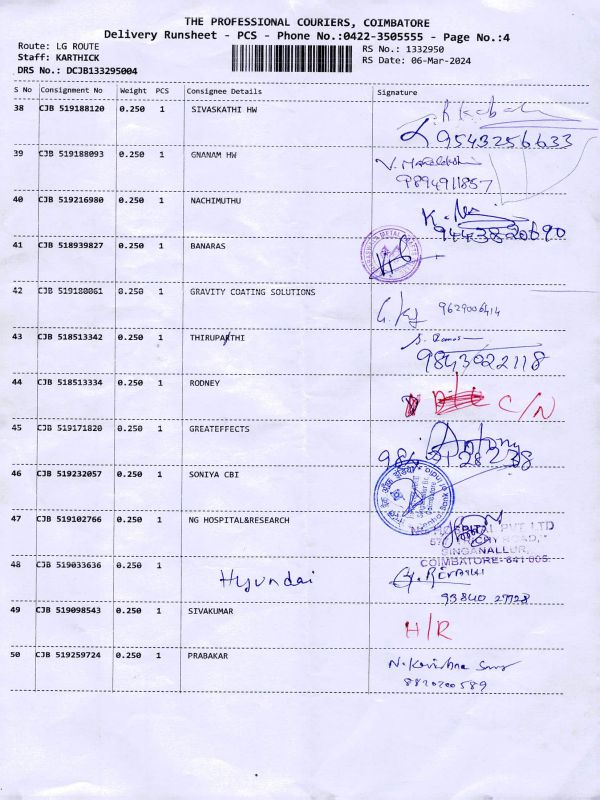 THE PROFESSIONAL COURIERS, COIMBATORE
Delivery Runsheet - PCS - Phone No.:0422-3505555 - Page No.:4
Route: LG ROUTE RS No.: 1332950
Staff: KARTHICK RS Date: 06-Mar-2024
DRS No.: DCJB133295004
S No Consignment No Weight PCS Consignee Details Signature
38 CJB 519188120 0.250 1 SIVASKATHI HW
9543256633
39 CJB 519188093 0.250 1 GNANAM HW
9894911857
40 CJB 519216980 0.250 1 NACHIMUTHU
9443820690
41 CJB 518939827 0.250 1 BANARAS
42 CJB 519180061 0.250 1 GRAVITY COATING SOLUTIONS 9629006414
43 CJB 518513342 0.250 1 THIRUPATHI
9843022118
44 CJB 518513334 0.250 1 RODNEY C/N
45 CJB 519171820 0.250 1 GREATEFFECTS Antony
46 CJB 519232057 0.250 1 SONIYA CBI
47 CJB 519102766 0.250 1 NG HOSPITAL&RESEARCH
HOSPITAL PVT LTD
TRICHY ROAD,
SINGANALLUR,
COIMBATORE-641 005.
48 CJB 519033636 0.250 1 Hyundai
93840 27728
49 CJB 519098543 0.250 1 SIVAKUMAR H/R
50 CJB 519259724 0.250 1 PRABAKAR
8820200589